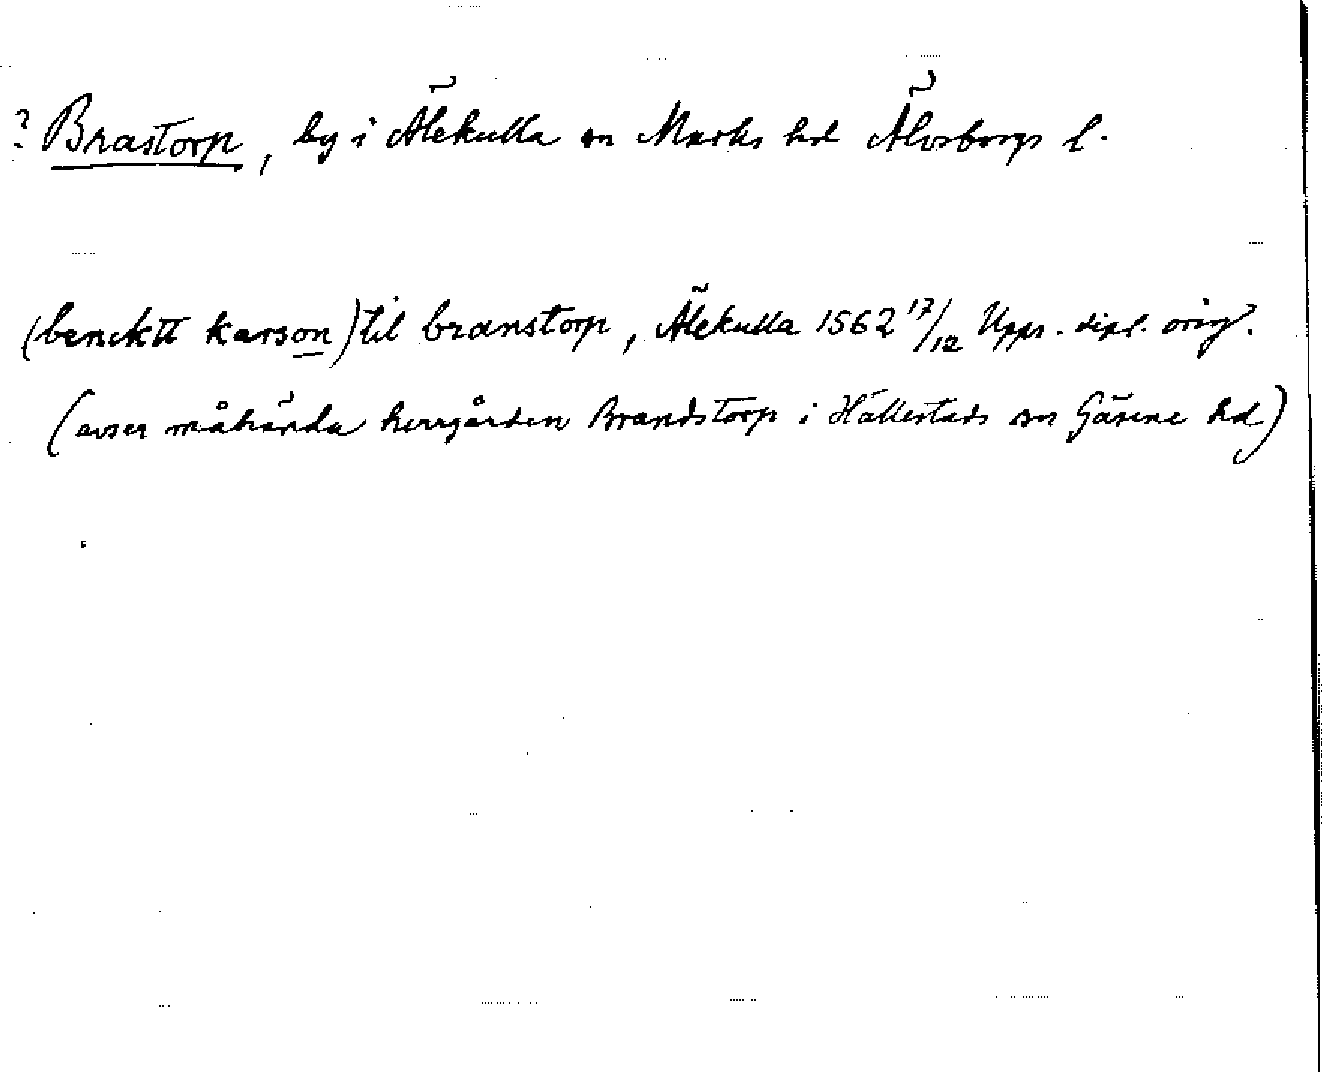 ? Brastorp, by i Älekulla sn Marks hd Älvsborgs l.
(bencktt karson) til branstorp, Älekulla 1562 17/12 Upps. dipl. orig.
(avser måhända herrgården Brandstorp i Hällestads sn Gäsene hd)